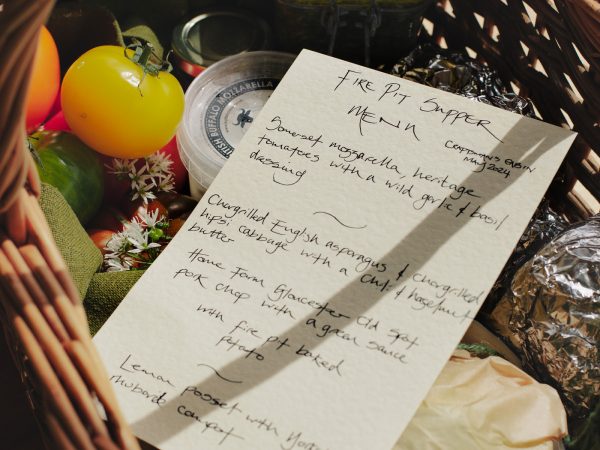 BRITISH BUFFALO MOZZARELLA
FIRE PIT SUPPER
MENU
CRAFTSMAN'S CABIN
MAY 2024
Somerset mozzarella, heritage
tomatoes with a wild garlic & basil
dressing
~
Chargrilled English asparagus & chargrilled
hispi cabbage with a chilli & hazelnut
butter
Home Farm Gloucester Old Spot
pork chop with a green sauce
with fire pit baked
potato
~
Lemon posset with
rhubarb compot